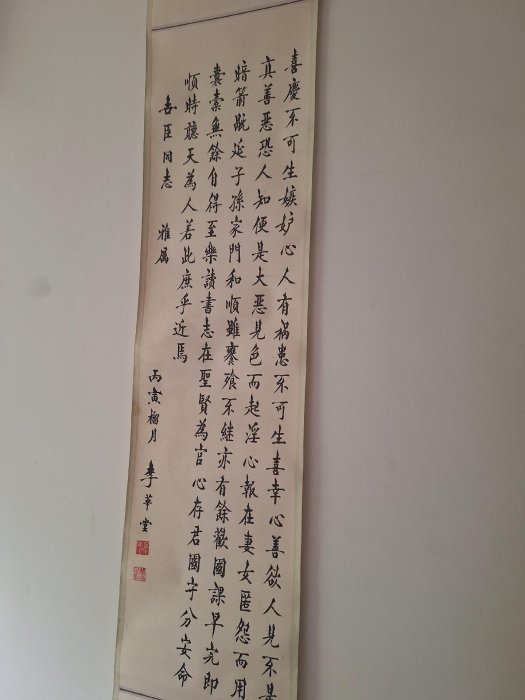 喜慶不可生嫉妒心人有禍患不可生喜幸心善欲人見不是
真善惡恐人知便是大惡見色而起淫心報在妻女匿怨而用
暗箭禍延子孫家門和順雖饔飧不繼亦有餘歡國課早完即
囊橐無餘自得至樂讀書志在聖賢為官心存君國守分安命
順時聽天為人若此庶乎近焉
臣同志 雅屬
丙寅榴月 李華堂